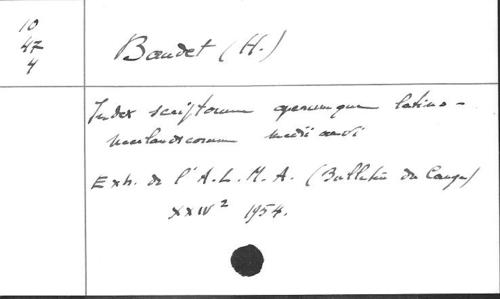 10
47
4
Baudet (H.)
Index scriptorum operumque latino-
neerlandicorum medii aevi
Extr. de l'A.L.M.A. (Bulletin du Cange)
XXIV² 1954.